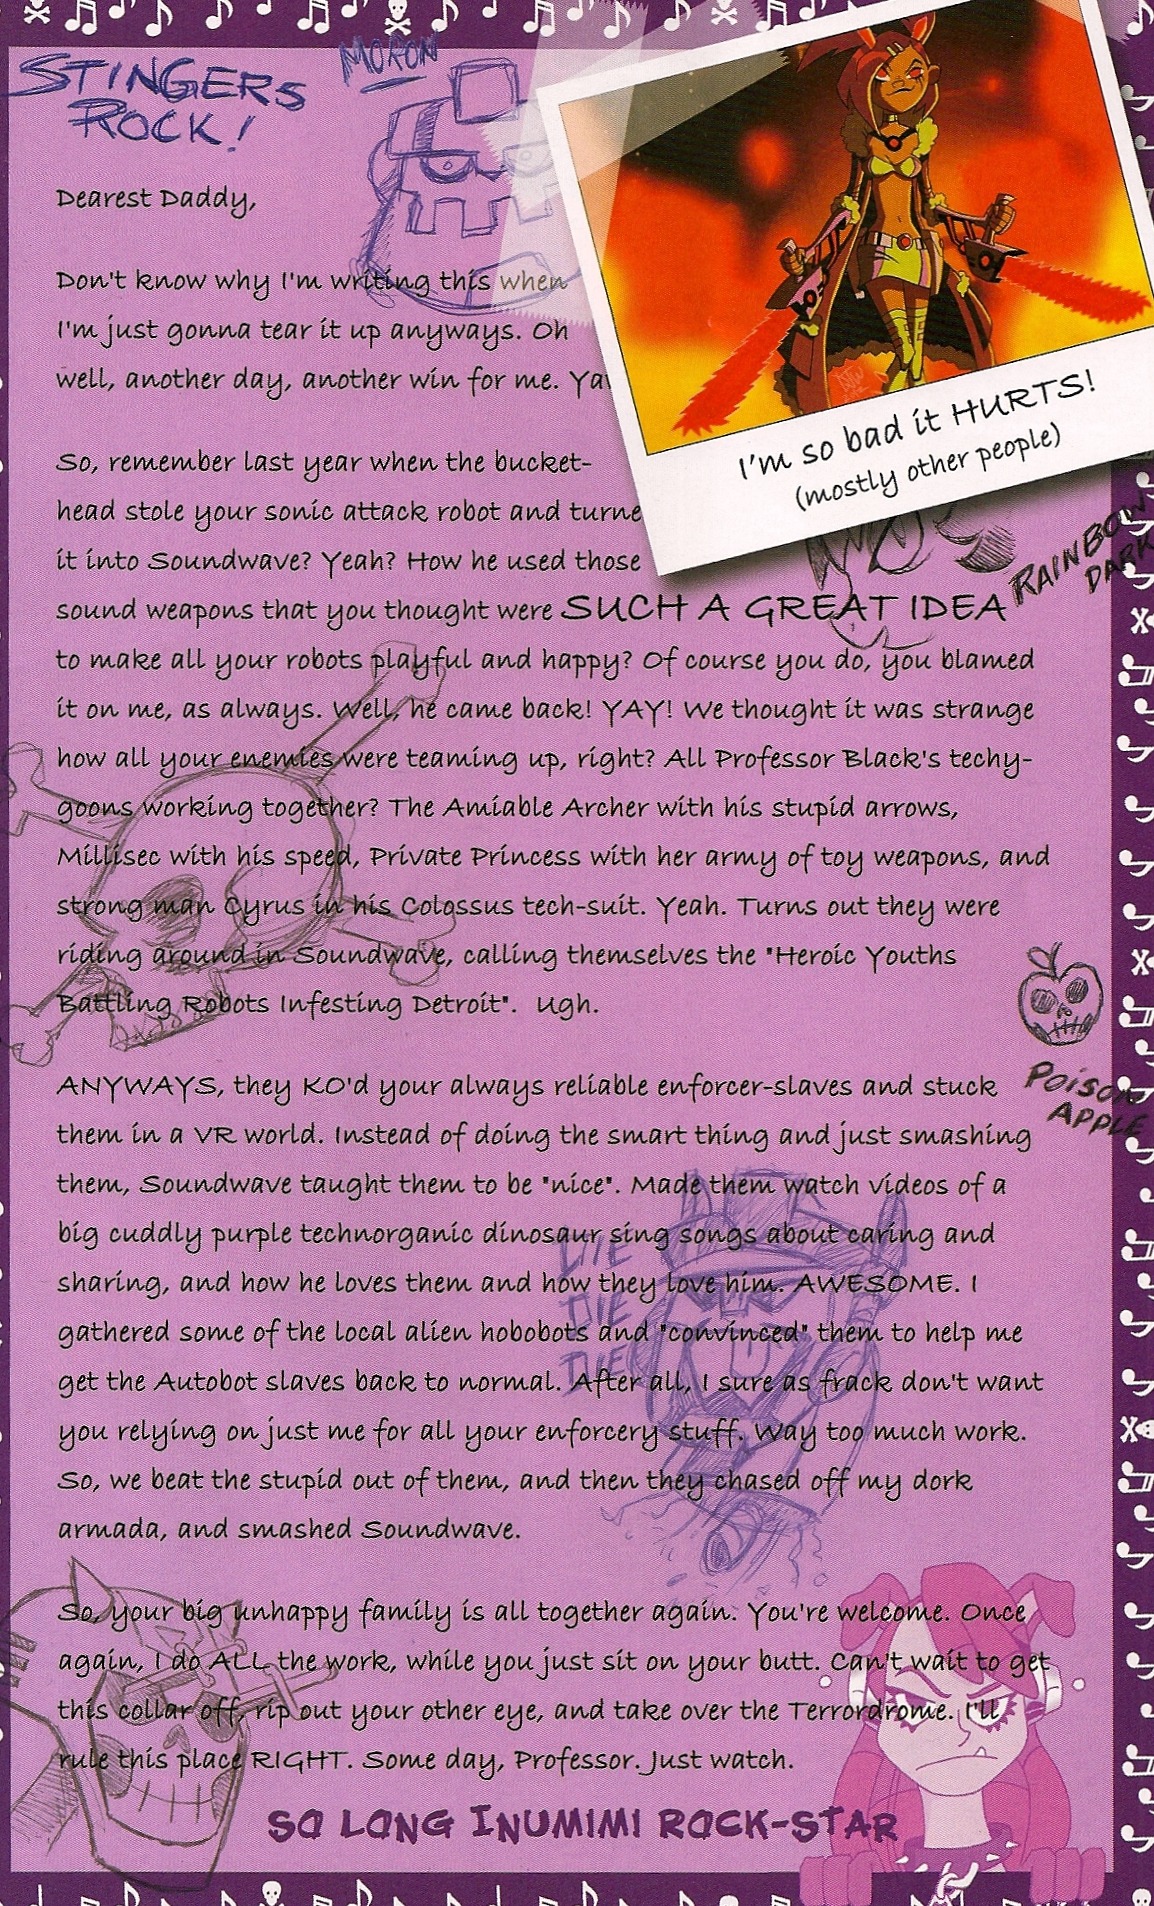 STINGERS
ROCK!
MORON
Dearest Daddy,
Don't know why I'm writing this when
I'm just gonna tear it up anyways. Oh
well, another day, another win for me.
I'm so bad it HURTS!
(mostly other people)
So, remember last year when the bucket-
head stole your sonic attack robot and turne
it into Soundwave? Yeah? How he used those
sound weapons that you thought were SUCH A GREAT IDEA
RAINBOW
DARK
to make all your robots playful and happy? Of course you do, you blamed
it on me, as always. Well, he came back! YAY! We thought it was strange
how all your enemies were teaming up, right? All Professor Black's techy-
goons working together? The Amiable Archer with his stupid arrows,
Millisec with his speed, Private Princess with her army of toy weapons, and
strong man Cyrus in his Colossus tech-suit. Yeah. Turns out they were
riding around in Soundwave, calling themselves the "Heroic Youths
Battling Robots Infesting Detroit". Ugh.
POISON
APPLE
ANYWAYS, they KO'd your always reliable enforcer-slaves and stuck
them in a VR world. Instead of doing the smart thing and just smashing
them, Soundwave taught them to be "nice". Made them watch videos of a
big cuddly purple technorganic dinosaur sing songs about caring and
sharing, and how he loves them and how they love him. AWESOME. I
gathered some of the local alien hobobots and "convinced" them to help me
get the Autobot slaves back to normal. After all, I sure as frack don't want
you relying on just me for all your enforcery stuff. Way too much work.
So, we beat the stupid out of them, and then they chased off my dork
armada, and smashed Soundwave.
DIE
DIE
DIE
So, your big unhappy family is all together again. You're welcome. Once
again, I do ALL the work, while you just sit on your butt. Can't wait to get
this collar off, rip out your other eye, and take over the Terrordrome. I'll
rule this place RIGHT. Some day, Professor. Just watch.
SO LONG INUMIMI ROCK-STAR